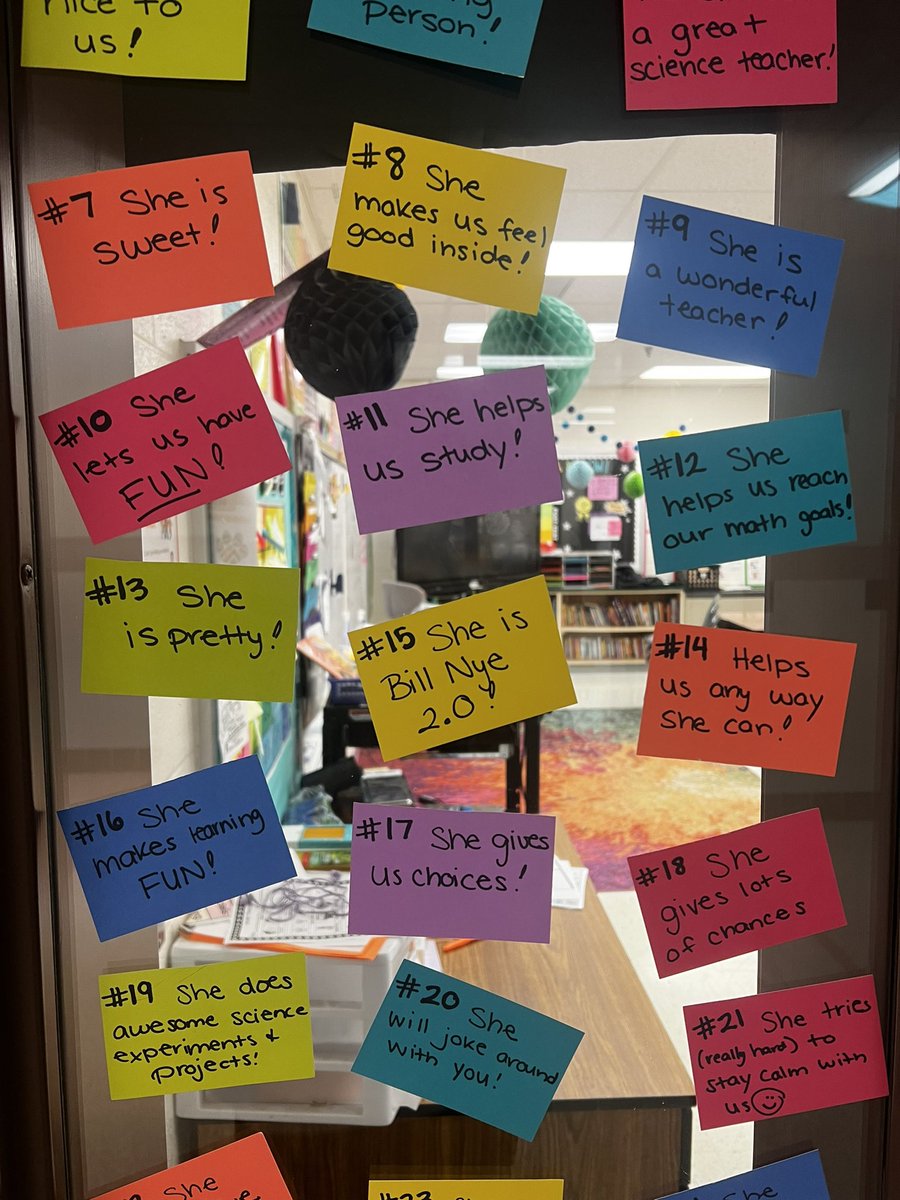 nice to
us!
person!
a great
science teacher!
#7 She is
sweet!
#8 She
makes us feel
good inside!
#9 She is
a wonderful
teacher!
#10 She
lets us have
FUN!
#11 She helps
us study!
#12 She
helps us reach
our math goals!
#13 She
is pretty!
#15 She is
Bill Nye
2.0!
#14 Helps
us any way
she can!
#16 She
makes learning
FUN!
#17 She gives
us choices!
#18 She
gives lots
of chances
#19 She does
awesome science
experiments &
projects!
#20 She
will joke around
with you!
#21 She tries
(really hard) to
stay calm with
us
She
#23
She